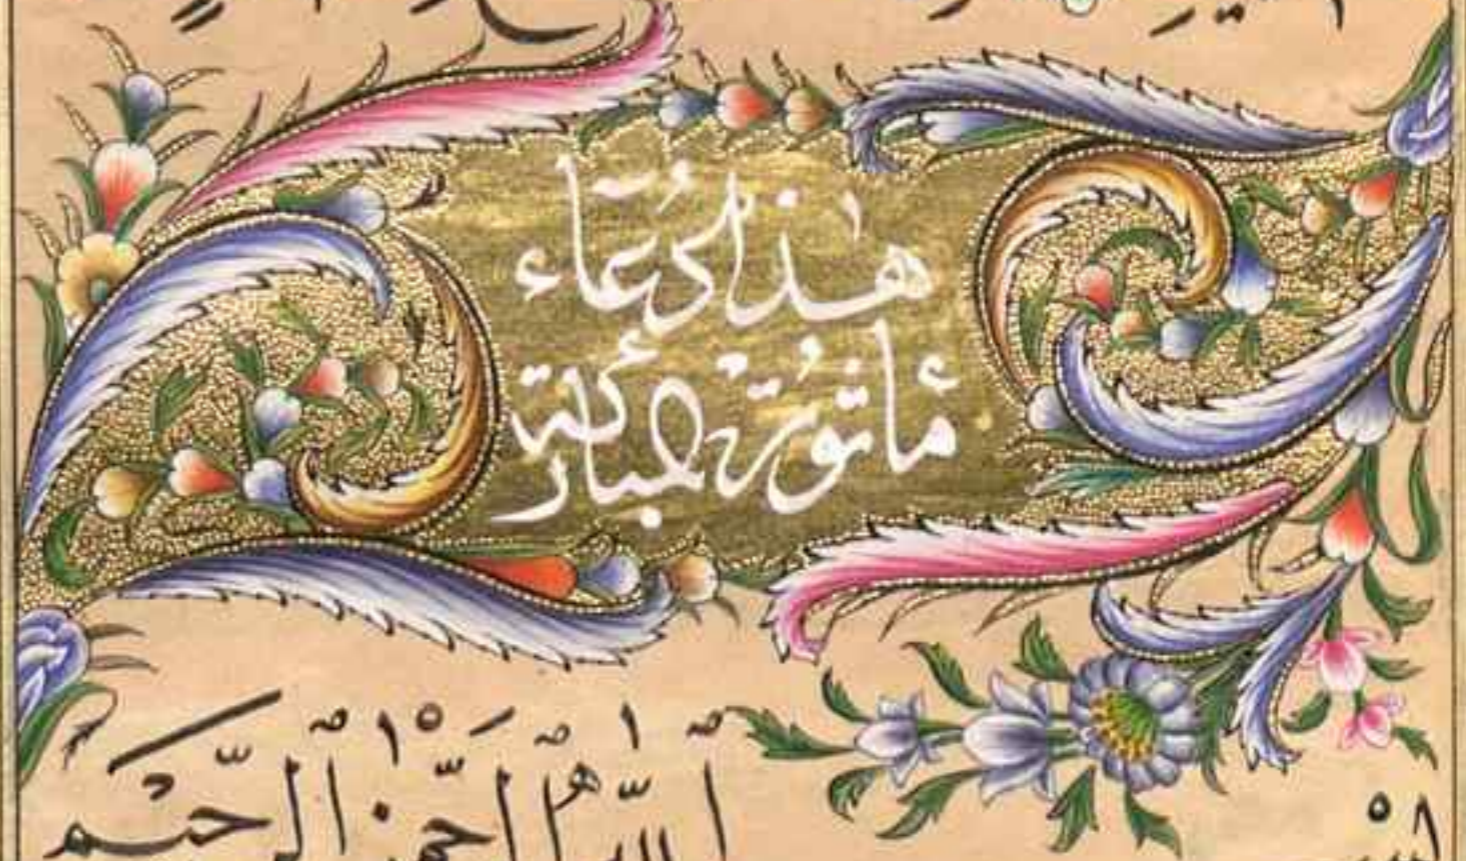 هٰذا الدُعَاء
مأثورُة المباركة
الله الرَّحْمٰن الرَّحيم